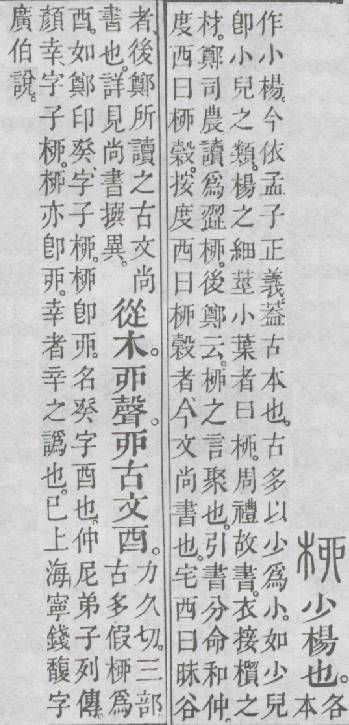 桺少楊也。各本
作小楊。今依孟子正義。葢古本也。古多以少爲小。如少兒
卽小兒之類。楊之細莖小葉者曰桺。周禮故書。衣接橮之
材。鄭司農讀爲澀桺。後鄭云。桺之言聚也。引書分命和仲
度西曰桺穀。按度西曰桺穀者、今文尚書也。宅西曰昧谷
者、後鄭所讀之古文尚
書也。詳見尚書撰異。
從木。丣聲。丣古文酉。
力久切。三部
古多假桺爲
酉。如鄭印癸、字子桺。桺卽丣。名癸字酉也。仲尼弟子列傳。
顏幸、字子桺。桺亦卽丣。幸者辛之譌也。巳上海寧錢馥字
廣伯說。